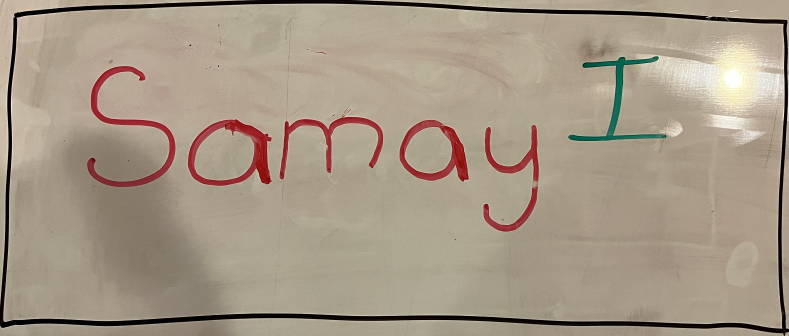 Samay I